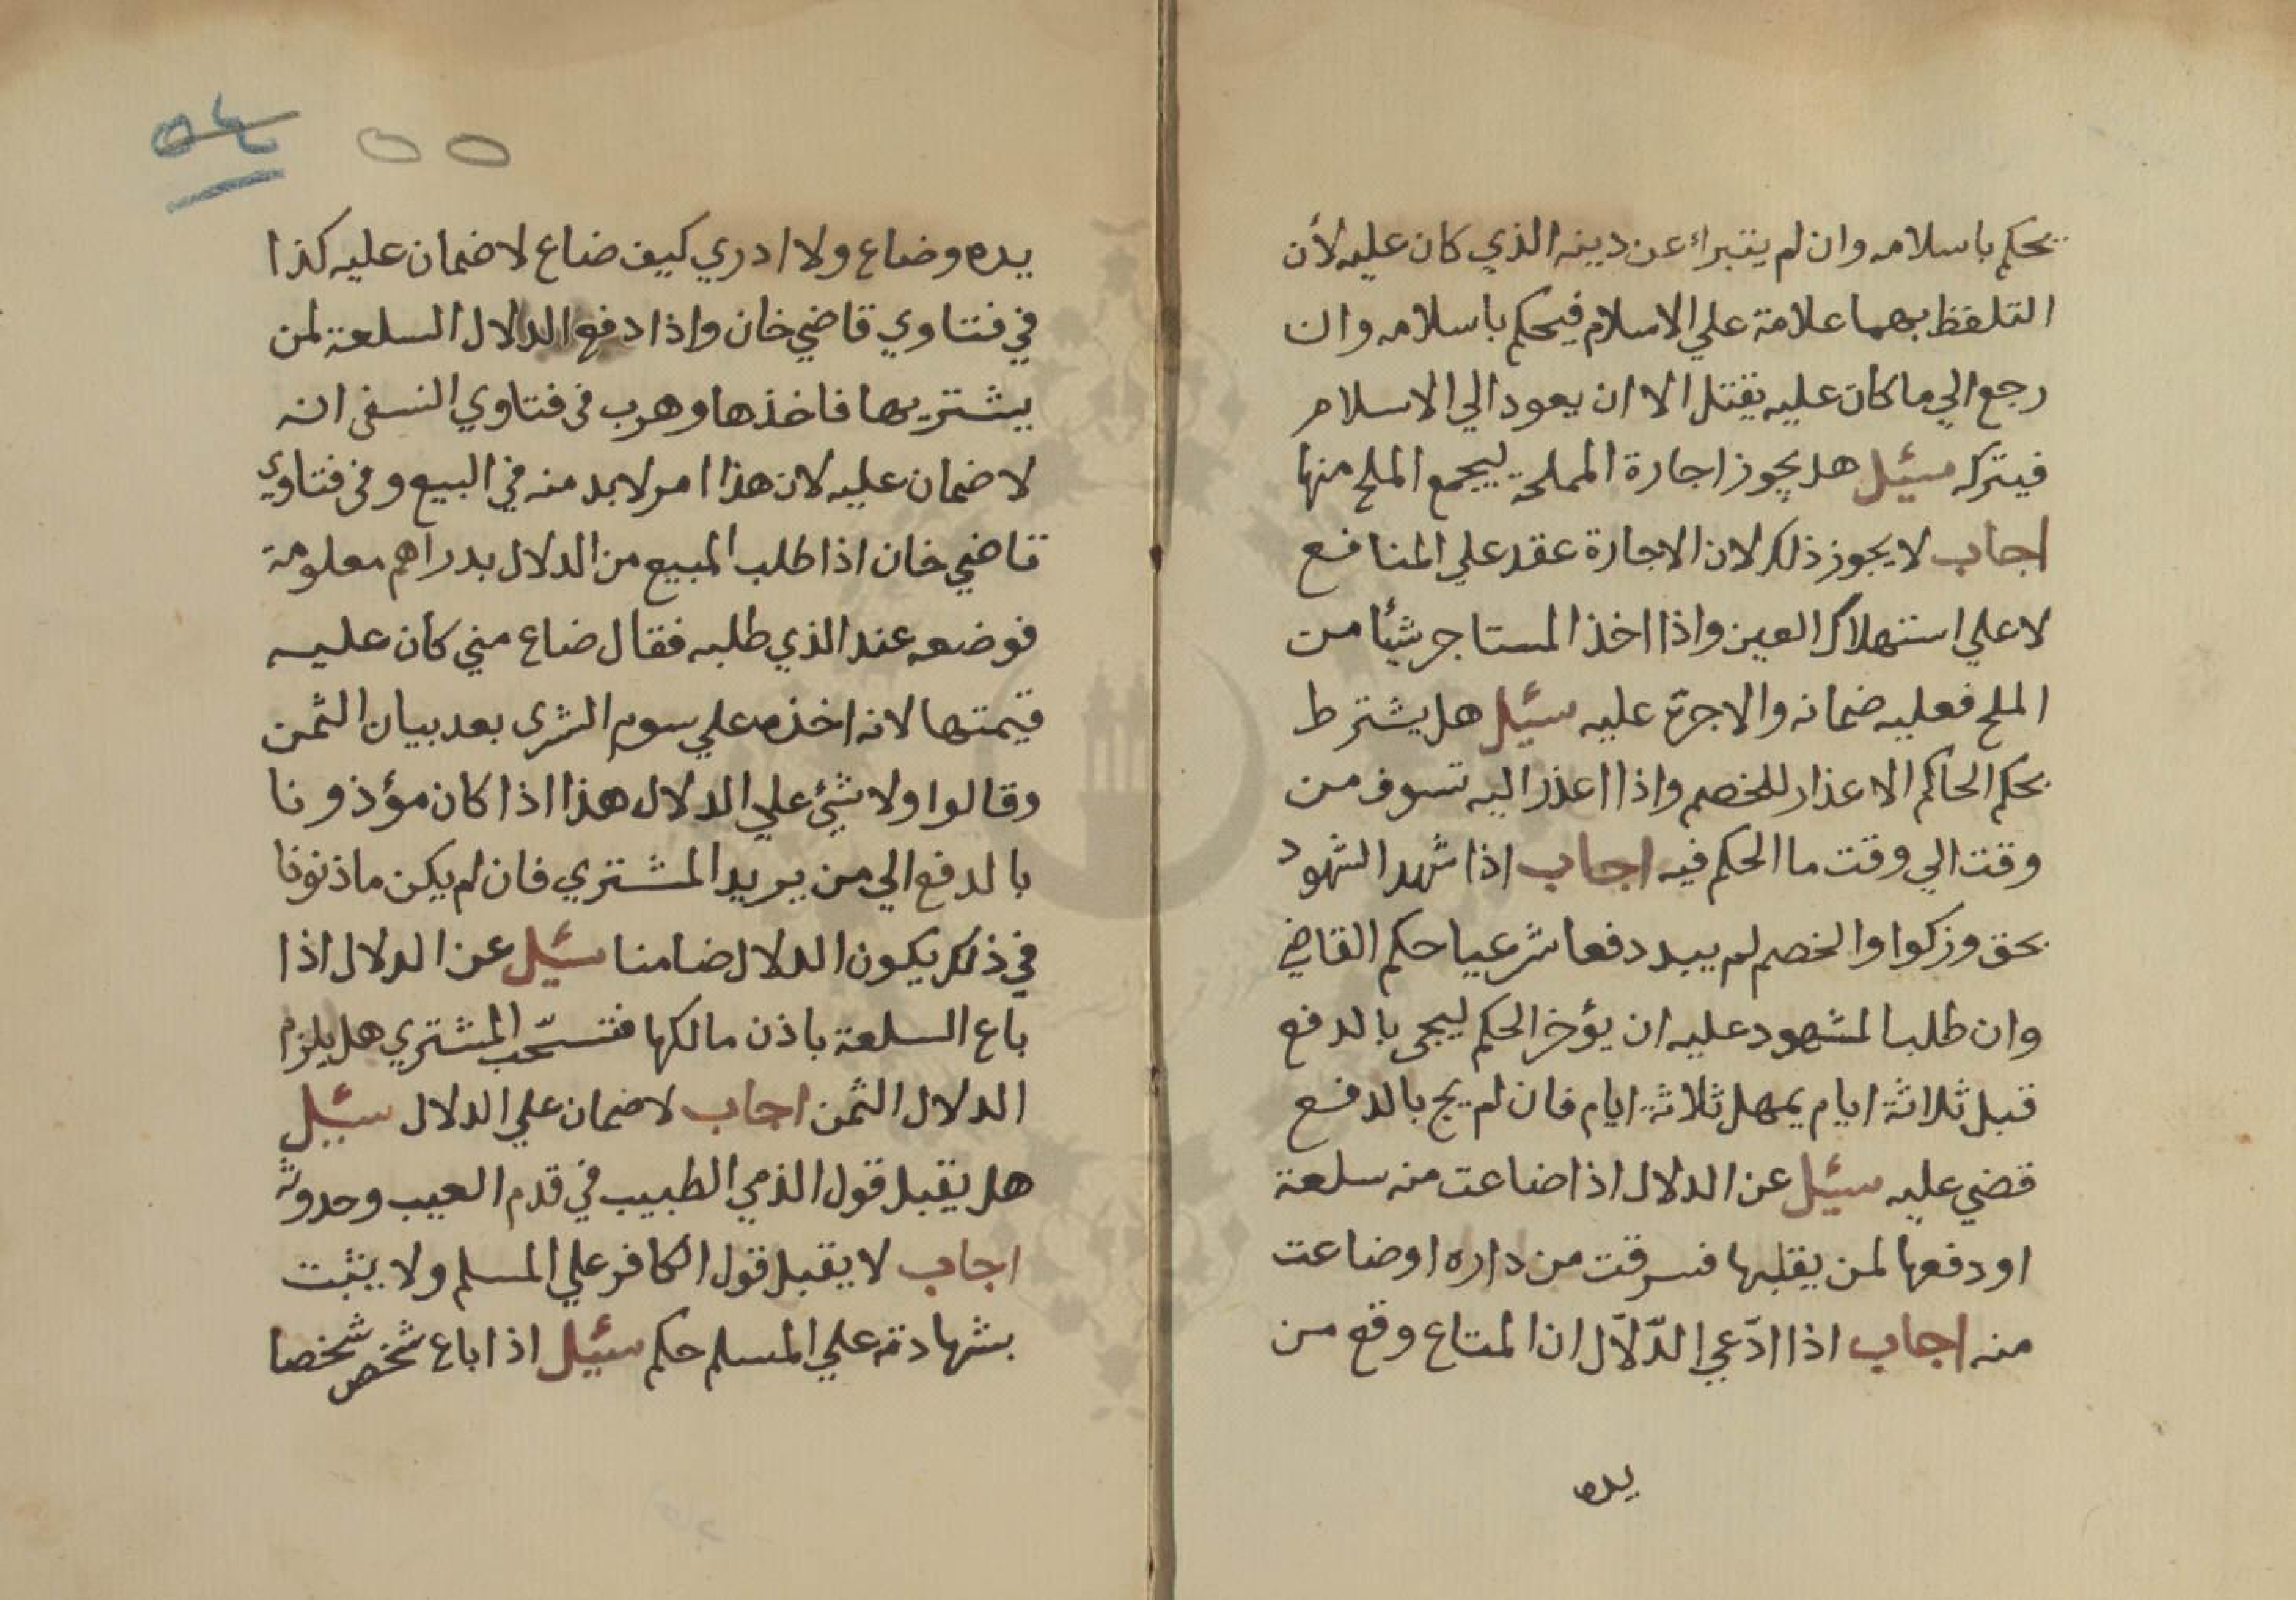 يحكم باسلامه وان لم يتبراء عن دينه الذي كان عليه لأن
التلفظ بهما علامة علي الاسلام فيحكم باسلامه وان
رجع الي ما كان عليه يقتل الا ان يعود الي الاسلام
فيتركه سئيل هل يجوز اجارة المملحة ليجمع الملح منها
اجاب لا يجوز ذلك لان الاجارة عقد علي المنافع
لا علي استهلاك العين واذا اخذ المستاجر شيأ من
الملح فعليه ضمانه والاجرة عليه سئيل هل يشترط
بحكم الحاكم الاعذار للخصم واذا اعذر اليه تسوف من
وقت الي وقت ما الحكم فيه اجاب اذا شهد الشهود
بحق وزكوا والخصم لم يبد دفعا شرعيا حكم القاضي
وان طلب المشهود عليه ان يؤخر الحكم ليجى بالدفع
قبل ثلاثة ايام يمهل ثلاثة ايام فان لم يج بالدفع
قضي عليه سئيل عن الدلال اذا ضاعت منه سلعة
او دفعها لمن يقلبها فسرقت من داره او ضاعت
منه اجاب اذا ادّعي الدّلاّل ان المتاع وقع من
يده
٥٤ ٥٥
يده وضاع ولا ادري كيف ضاع لا ضمان عليه كذا
في فتاوي قاضي خان واذا دفع الدلال السلعة لمن
يشتريها فاخذها وهرب فى فتاوي النسفى انه
لا ضمان عليه لان هذا امر لا بد منه في البيع وفى فتاوي
قاضي خان اذا طلب المبيع من الدلال بدراهم معلومة
فوضعه عند الذي طلبه فقال ضاع مني كان عليه
قيمتها لانه اخذه علي سوم الشرى بعد بيان الثمن
وقالوا ولا شئ علي الدلال هذا اذا كان مؤذونا
بالدفع الي من يريد المشتري فان لم يكن ماذنونا
في ذلك يكون الدلال ضامنا سئيل عن الدلال اذا
باع السلعة باذن مالكها فتسحّب المشتري هل يلزم
الدلال الثمن اجاب لا ضمان علي الدلال سئيل
هل يقبل قول الذمي الطبيب في قدم العيب وحدوثه
اجاب لا يقبل قول الكافر علي المسلم ولا يثبت
بشهادته علي المسلم حكم سئيل اذا باع شخص شخصا